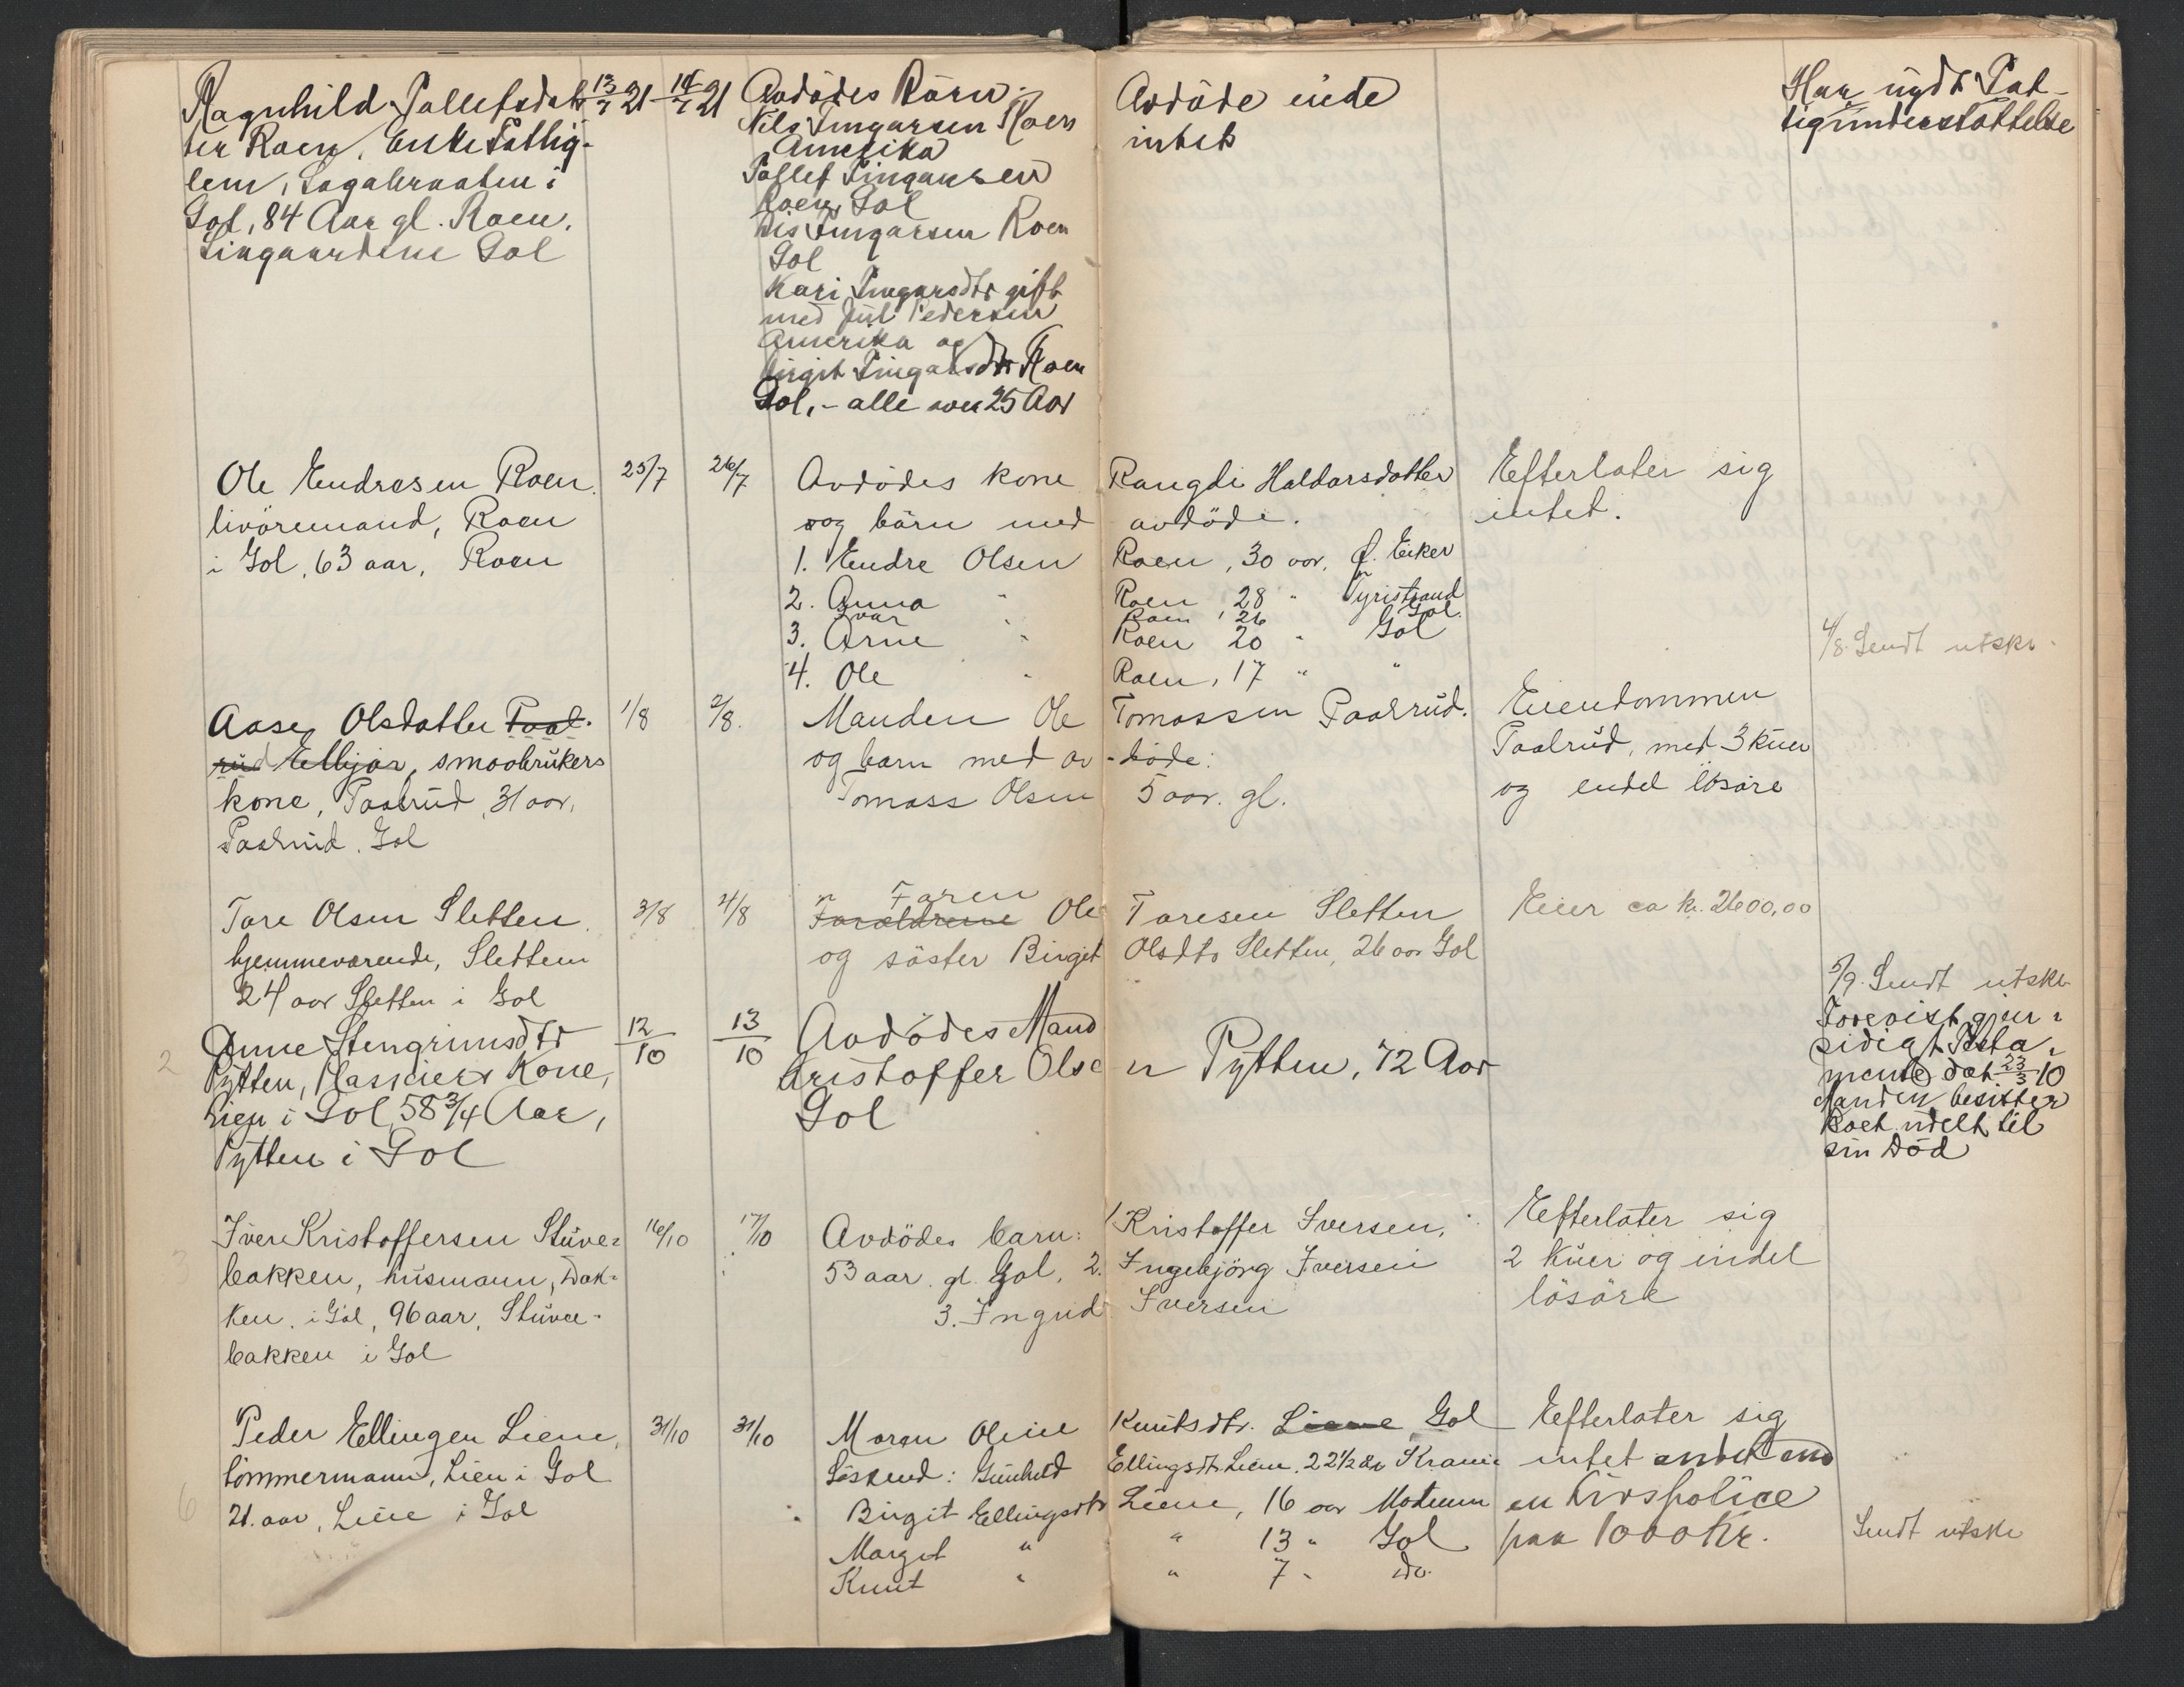 Ragnhild Tollefsdat-
ter Roen, Enke Fattig-
lem, i
Gol, 84 Aar gl. Roen,
Gol
13/7 21
14/7 21
Avdödes Börn:
Nils Roen
Amerika
Tollef
Roen Gol
Roen
Gol
Kari gift
med Jul Pedersen
Amerika og
Birgit Roen
Gol, - alle over 25 Aar
Avdöde eiede
intet
Har nydt Fat-
tigunderstøttelse
Ole Endresen Roen
livöremand, Roen
i Gol, 63 aar, Roen
25/7
26/7
Avdödes kone Rangdi Haldorsdatter
og börn med avdöde.
1. Endre Olsen Roen, 30 aar, Ø. Eiker
2. Anna " Roen, 28 " Tyristrand
Ivar " Roen, 26 Gol.
3. Arne " Roen 20 " Gol
4. Ole " Roen, 17 " "
Efterlater sig
intet.
4/8. Sendt utskr.
Aase Olsdatter Paal-
rud Elbjør, smaabrukers
kone, Paalrud, 31 aar,
Paalrud. Gol
1/8
2/8.
Manden Ole Tomassen Paalrud.
og barn med av-döde:
Tomass Olsen 5 aar. gl.
Eiendommen
Paalrud, med 3 kuer
og endel lösöre
Tore Olsen Sletten.
hjemmeværende, Sletten
24 aar Sletten i Gol
3/8
4/8
Faren
Forældrene Ole Toresen Sletten
og söster Birgit Olsdtr Sletten, 26 aar Gol
Eier ca kr. 2600,00
5/9. Sendt utskr.
Anne Stengrimsdtr
Pytten, Kone,
Lien i Gol, 58 3/4 Aar,
Pytten i Gol
12/10
13/10
Avdödes Mand
Kristoffer Olsen Pytten, 72 Aar
Gol
Forevist gjen-
sidigt Testa-
mente dat. 23/3 10
Manden besitter
Boet udelt til
sin Död
Iver Kristoffersen Stüve-
bakken, husmann, Bak-
ken, i Gol, 96 aar, Stüve-
bakken i Gol
16/10
17/10
Avdödes barn: 1 Kristoffer Iversen,
53 aar. gl. Gol, 2. Ingebjörg Iversen
3. Ingrid Iversen
Efterlater sig
2 kuer og endel
lösöre
Peder Ellingen Liene,
tömmermann, Lien i Gol
21. aar, Liene i Gol
31/10
31/10
Moren Oline Knutsdtr. Liene, Gol
Söskend: Gunhild Ellingsdtr. Liene, 22 1/2 aar
Birgit Ellingsdtr Liene, 16 aar Modum
Margit " " 13 " Gol
Knut " " 7 " do.
Efterlater sig
intet andet end
en Livspolice
paa 1000 Kr.
Sendt utskr